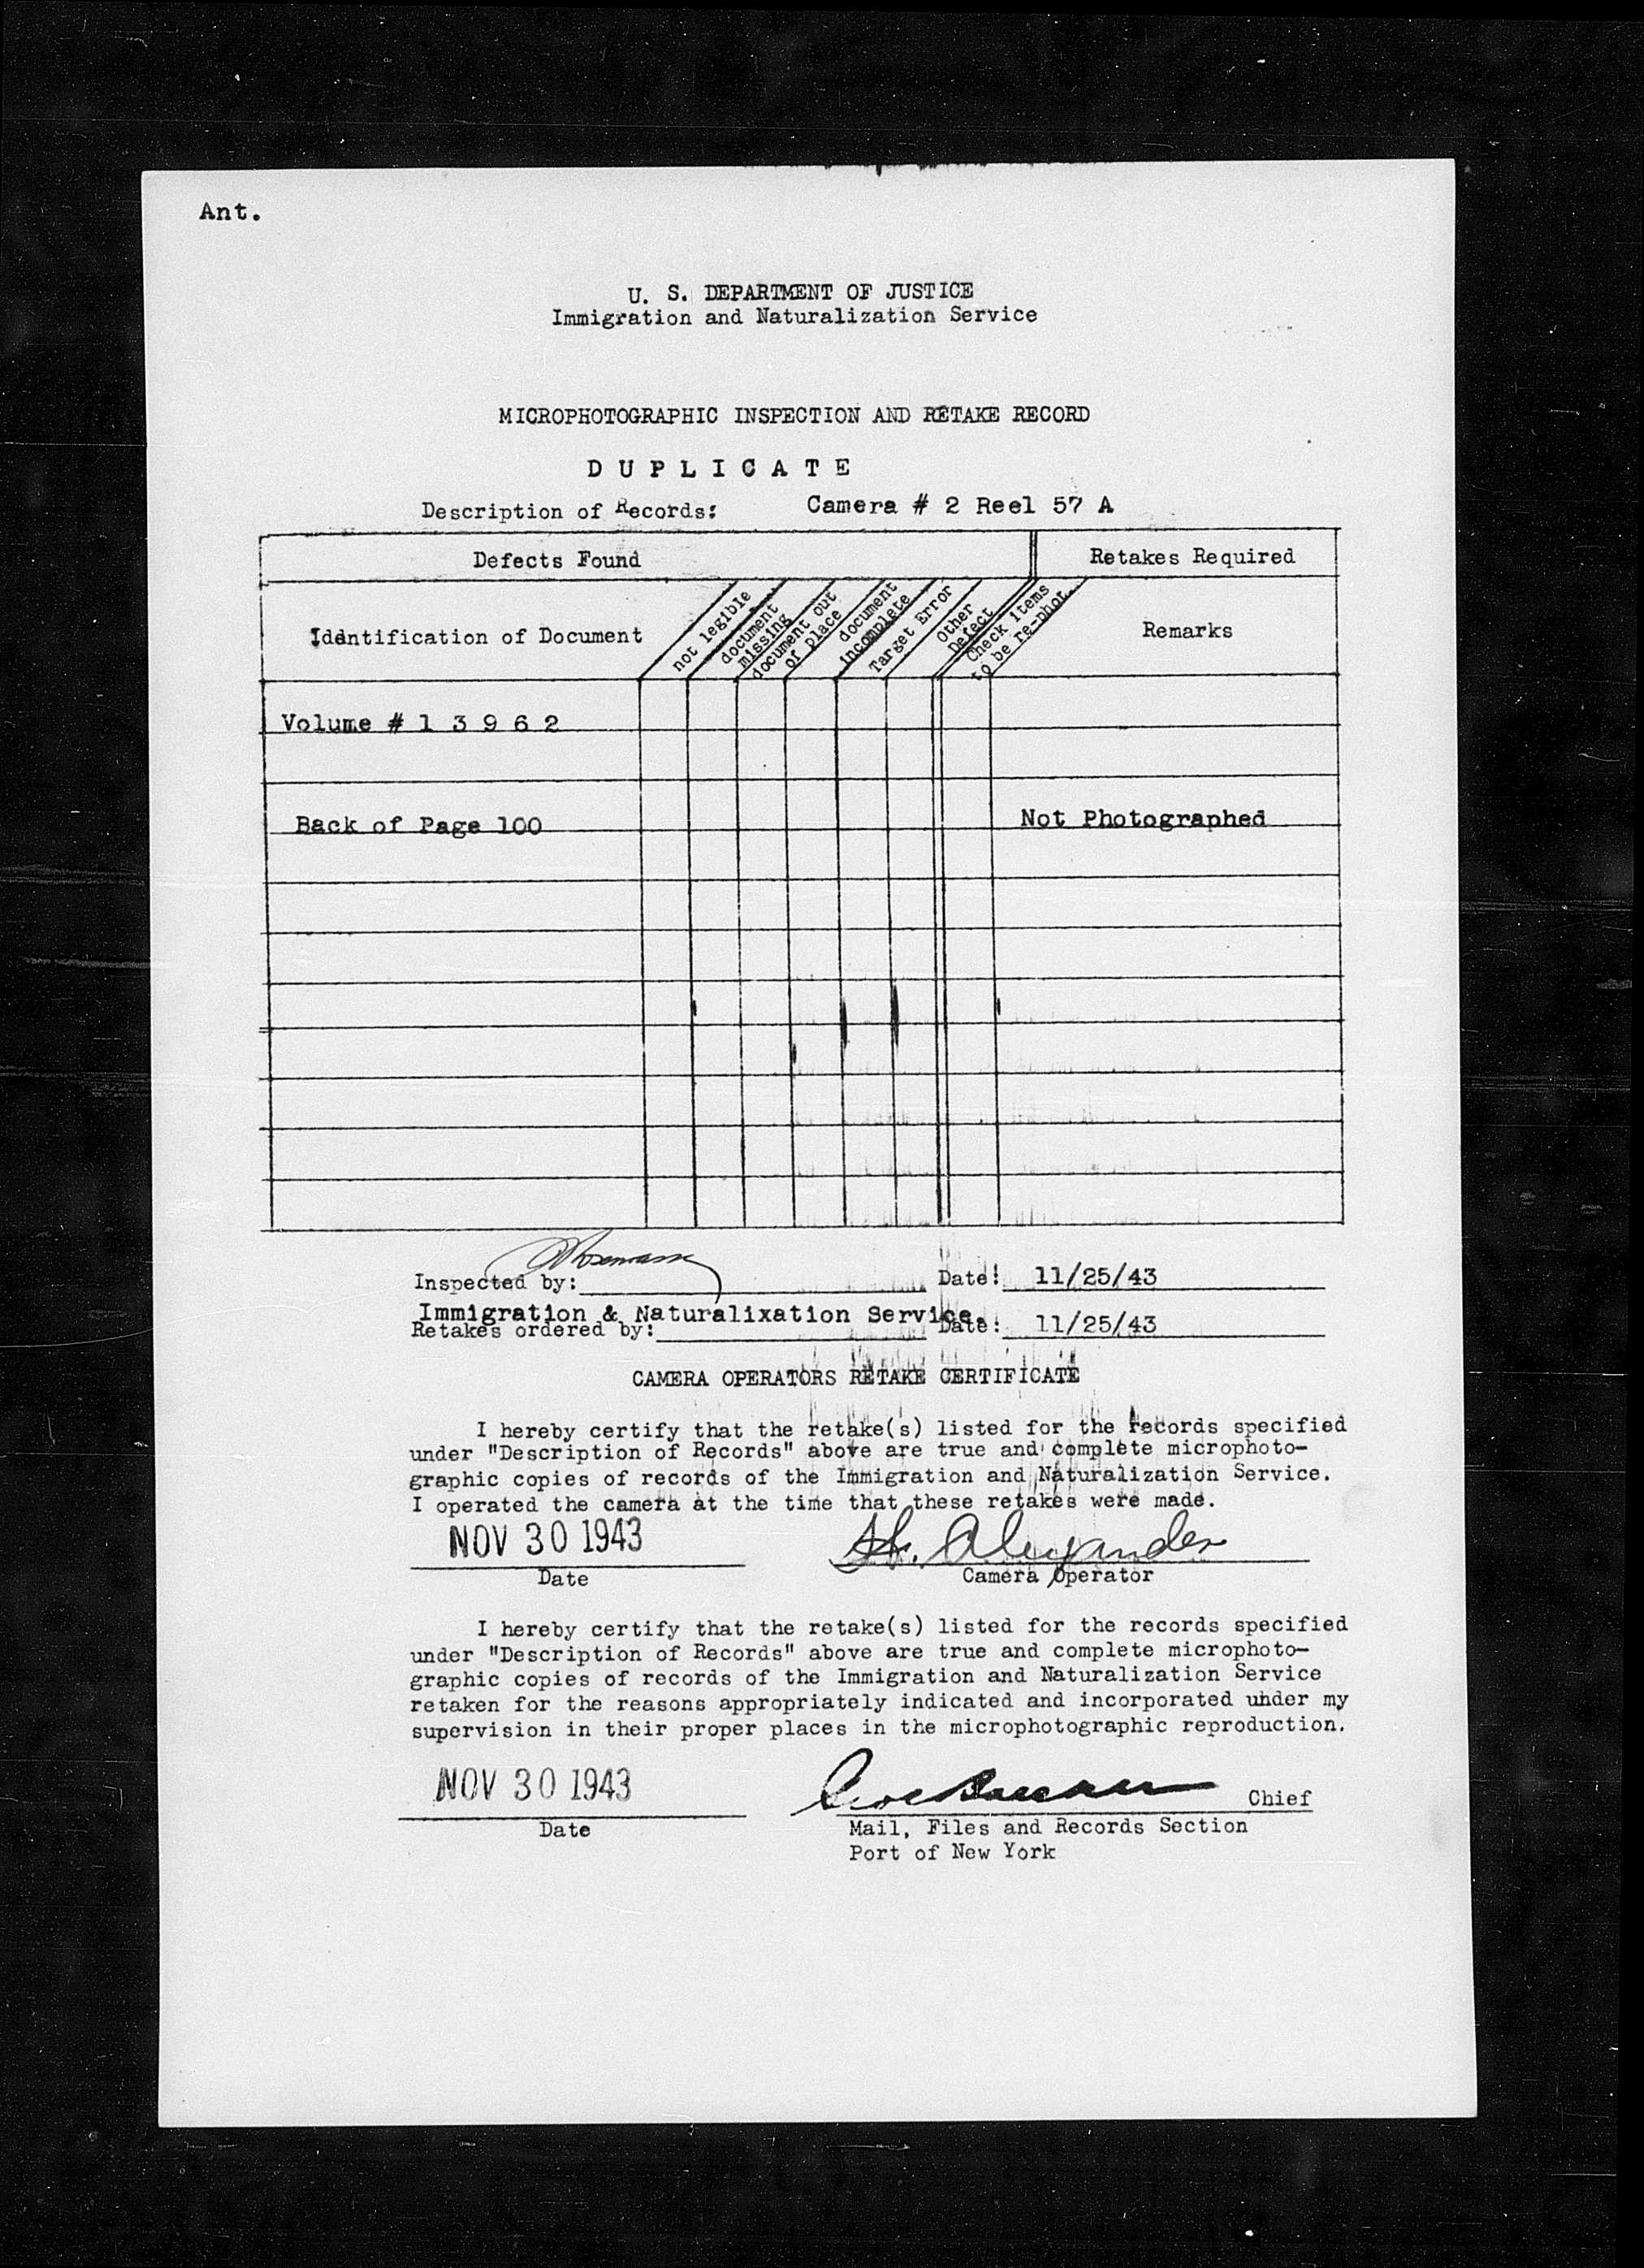 Ant.
U. S. DEPARTMENT OF JUSTICE
Immigration and Naturalization Service
MICROPHOTOGRAPHIC INSPECTION AND RETAKE RECORD
D U P L I C A T E
Description of Records: Camera # 2 Reel 57 A
Defects Found Retakes Required
Identification of Document
not legible
document missing
document out of place
document incomplete
Target Error
Other Defect
Check items to be re-phot.
Remarks
Volume # 1 3 9 6 2
Back of Page 100 Not Photographed
Inspected by: Date: 11/25/43
Immigration & Naturalixation Service.
Retakes ordered by: Date: 11/25/43
CAMERA OPERATORS RETAKE CERTIFICATE
I hereby certify that the retake(s) listed for the records specified
under "Description of Records" above are true and complete microphoto-
graphic copies of records of the Immigration and Naturalization Service.
I operated the camera at the time that these retakes were made.
NOV 30 1943 Alexander
Date Camera Operator
I hereby certify that the retake(s) listed for the records specified
under "Description of Records" above are true and complete microphoto-
graphic copies of records of the Immigration and Naturalization Service
retaken for the reasons appropriately indicated and incorporated under my
supervision in their proper places in the microphotographic reproduction.
NOV 30 1943 Chief
Date Mail, Files and Records Section
Port of New York